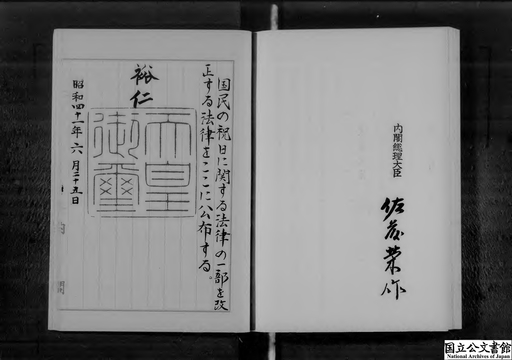 国民の祝日に関する法律の一部を改
正する法律をここに公布する。
裕仁
天皇
御璽
昭和四十一年六月二十五日
内閣総理大臣
佐藤榮作
国立公文書館
National Archives of Japan